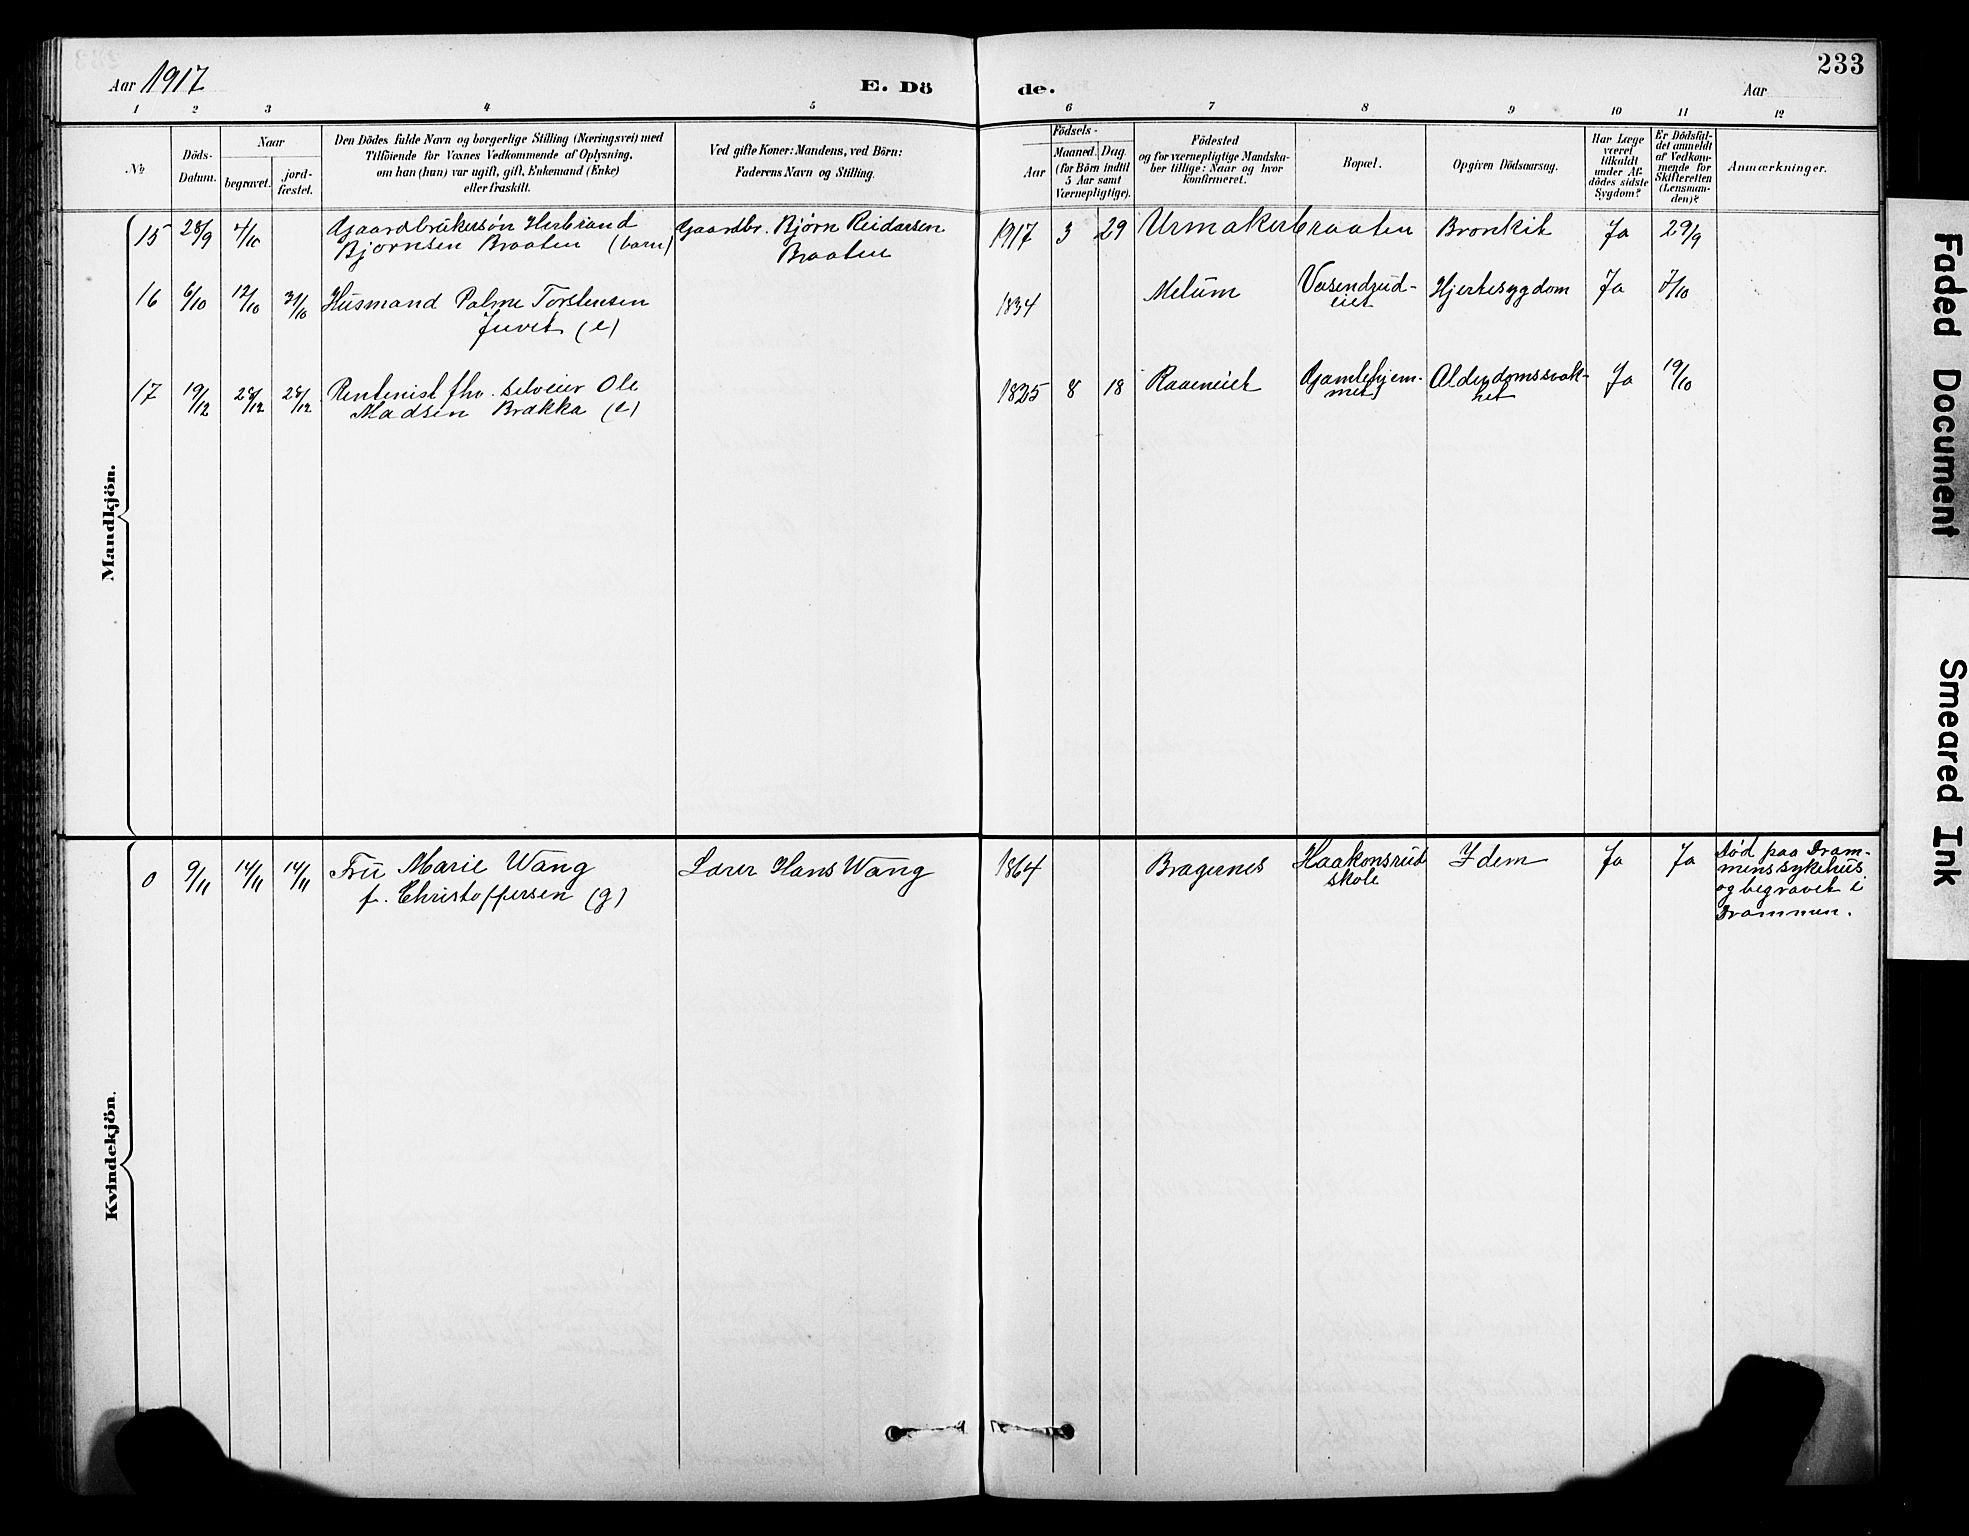 233
Aar 1917
E. Dö
de.
Aar
1 2 3 4 5 6 7 8 9 10 11 12
No
Döds-
Datum.
Naar
begravet.
jord-
fæstet.
Den Dödes fulde Navn og borgerlige Stilling (Næringsvei) med
Tilföiende for Voxnes Vedkommende af Oplysning,
om han (hun) var ugift, gift, Enkemand (Enke)
eller fraskilt.
Ved gifte Koner: Mandens, ved Börn:
Faderens Navn og Stilling.
Födsels-
Aar
Maaned. Dag
(for Börn indtil
5 Aar samt
Værnepligtige).
Födested
og for værnepligtige Mandska-
ber tillige: Naar og hvor
konfirmeret.
Bopæl.
Opgiven Dödsaarsag.
Har Læge
været
tilkaldt
under Af-
dödes sidste
Sygdom?
Er Dödsfal-
det anmeldt
af Vedkom-
mende for
Skifteretten
(Lensman-
den)?
Anmærkninger.
Mandkjön.
15 28/9 4/10 Gaardbrukersøn Herbrand Gaardbr. Bjørn Reidarsen 1917 3 29 Urmakerbraaten Bronkit Ja 29/9
Bjørnsen Braaten (barn) Braaten
16 6/10 12/10 31/10 Husmand Palme Torstensen 1834 Melum Vasendrud- Hjertesygdom Ja 7/10
Juvet (e) eiet
17 19/12 28/12 28/12 Rentenist fhv. selveier Ole 1825 8 18 Raaeneiet Gamlehjem- Alderdomssvak- Ja 19/10
Madsen Brakka (e) met het
Kvindekjön.
0 9/11 14/11 14/11 Fru Marie Wang Lærer Hans Wang 1864 Bragernes Haakonsrud Idem Ja Ja Død paa Dram-
f. Christoffersen (g) skole menssykehus
og begravet i
Drammen.
Faded Document
Smeared Ink